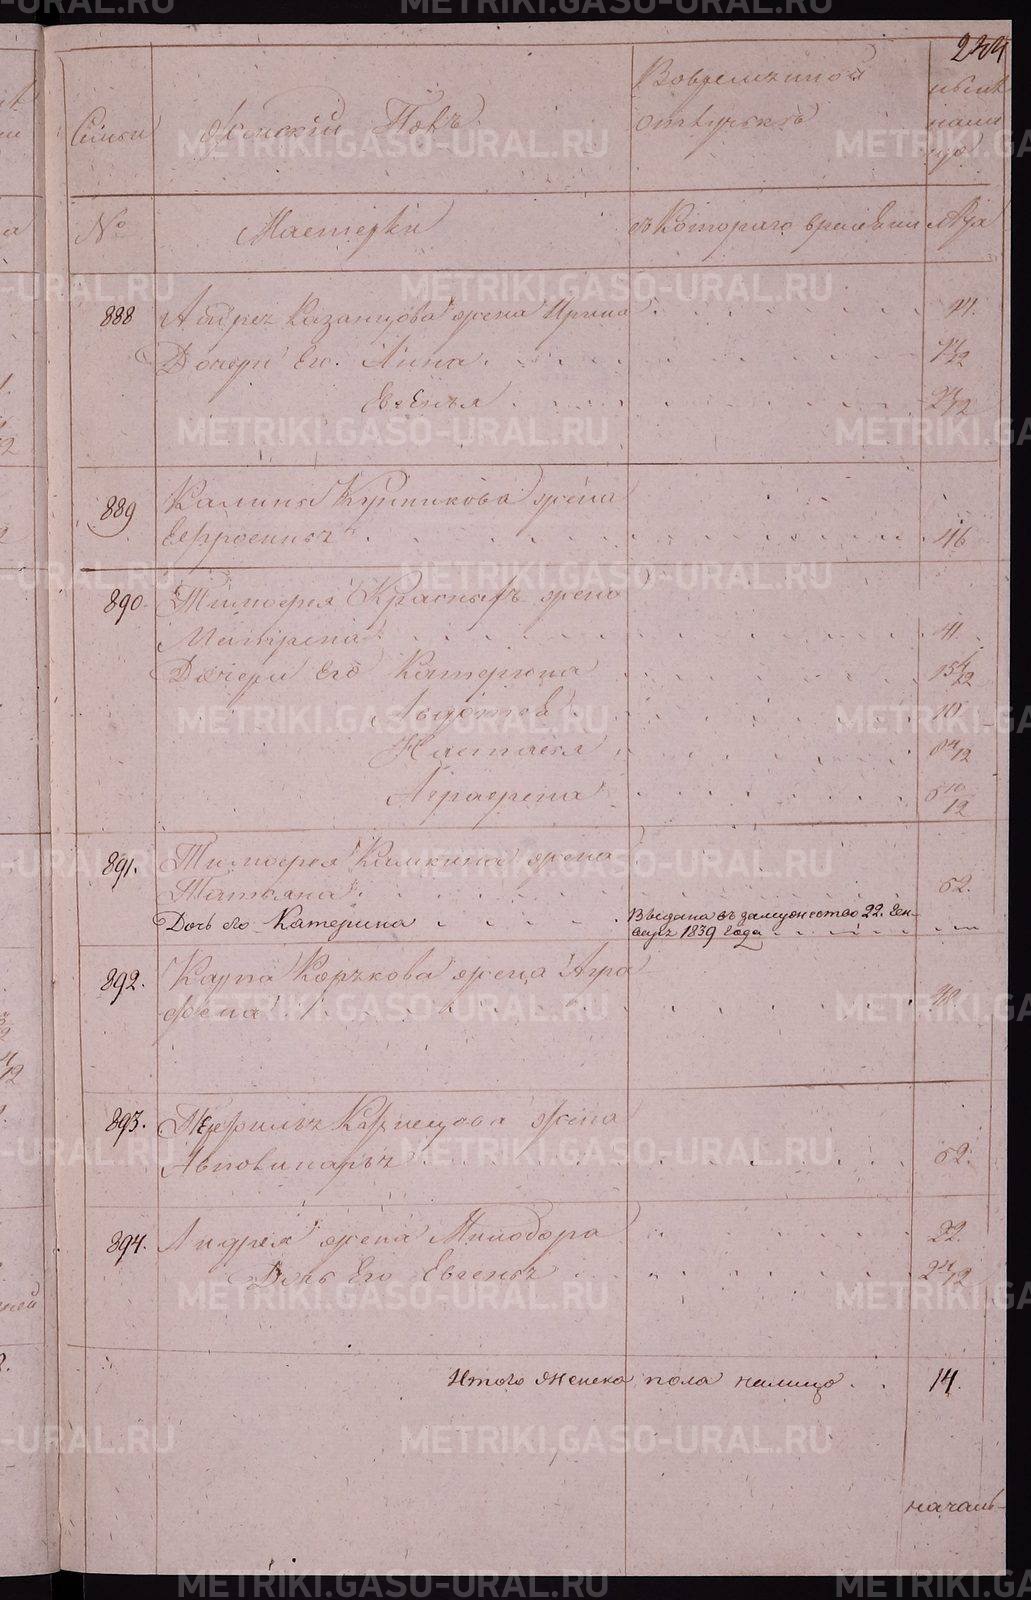 234
Семьи
Женский Полъ
Вовременной
отлучкѣ
нынѣ
на ли
цо
№
Мастерки
съ котораго времени
лѣта
888
Андрея Казанцова жена Ирина
41.
Дочери Его. Анна
Евгенья
2 4/12
889
Калины Кушникова жена
Ефросинья
46
890.
Тимофея Красныхъ жена
Матрена
41
Дочери Его Катерина
15 4/12
Авдотья
10
Настасья
8 4/12
Аграфена
6 10/12
891.
Тимофея Камкина жена
Татьяна
52.
Дочь его Катерина
Выдана въ замужество 22. Ген-
варя 1839 года
892.
Карпа Коркова жена Агра
фена
48.
893.
Терентья Кузнецова жена
52.
894.
Андрея жена Минодора
22.
Дочь Его Евгенья
2 4/12
Итого женска пола налицо
14.
началь-
METRIKI.GASO-URAL.RU